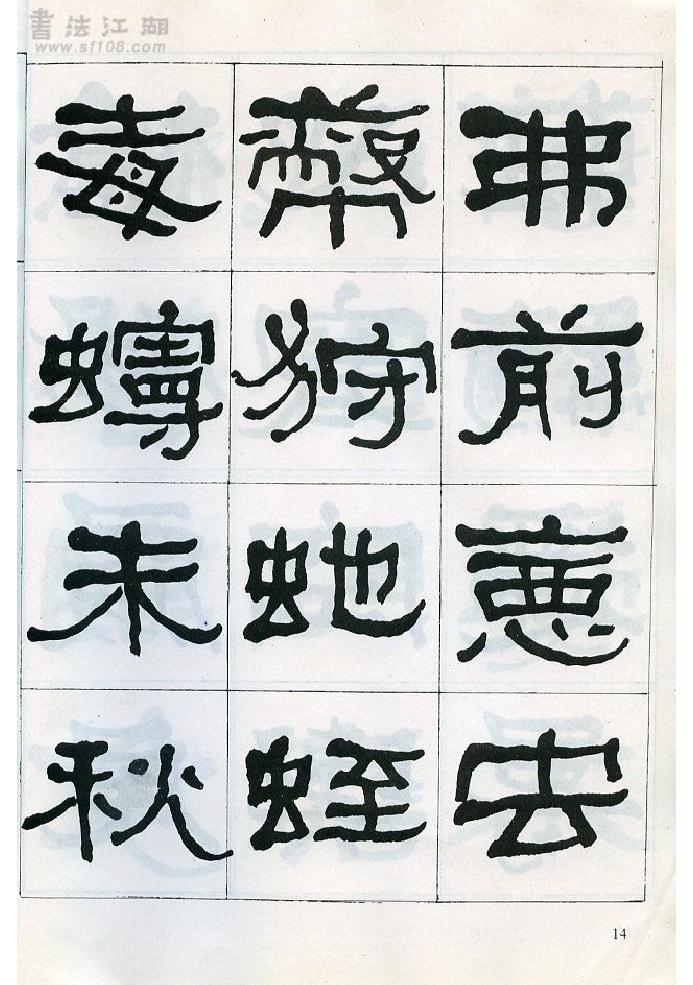 書法江湖
www.sf108.com
弗前惡虫
幣狩蛇蛭
毒蟃未秋
14